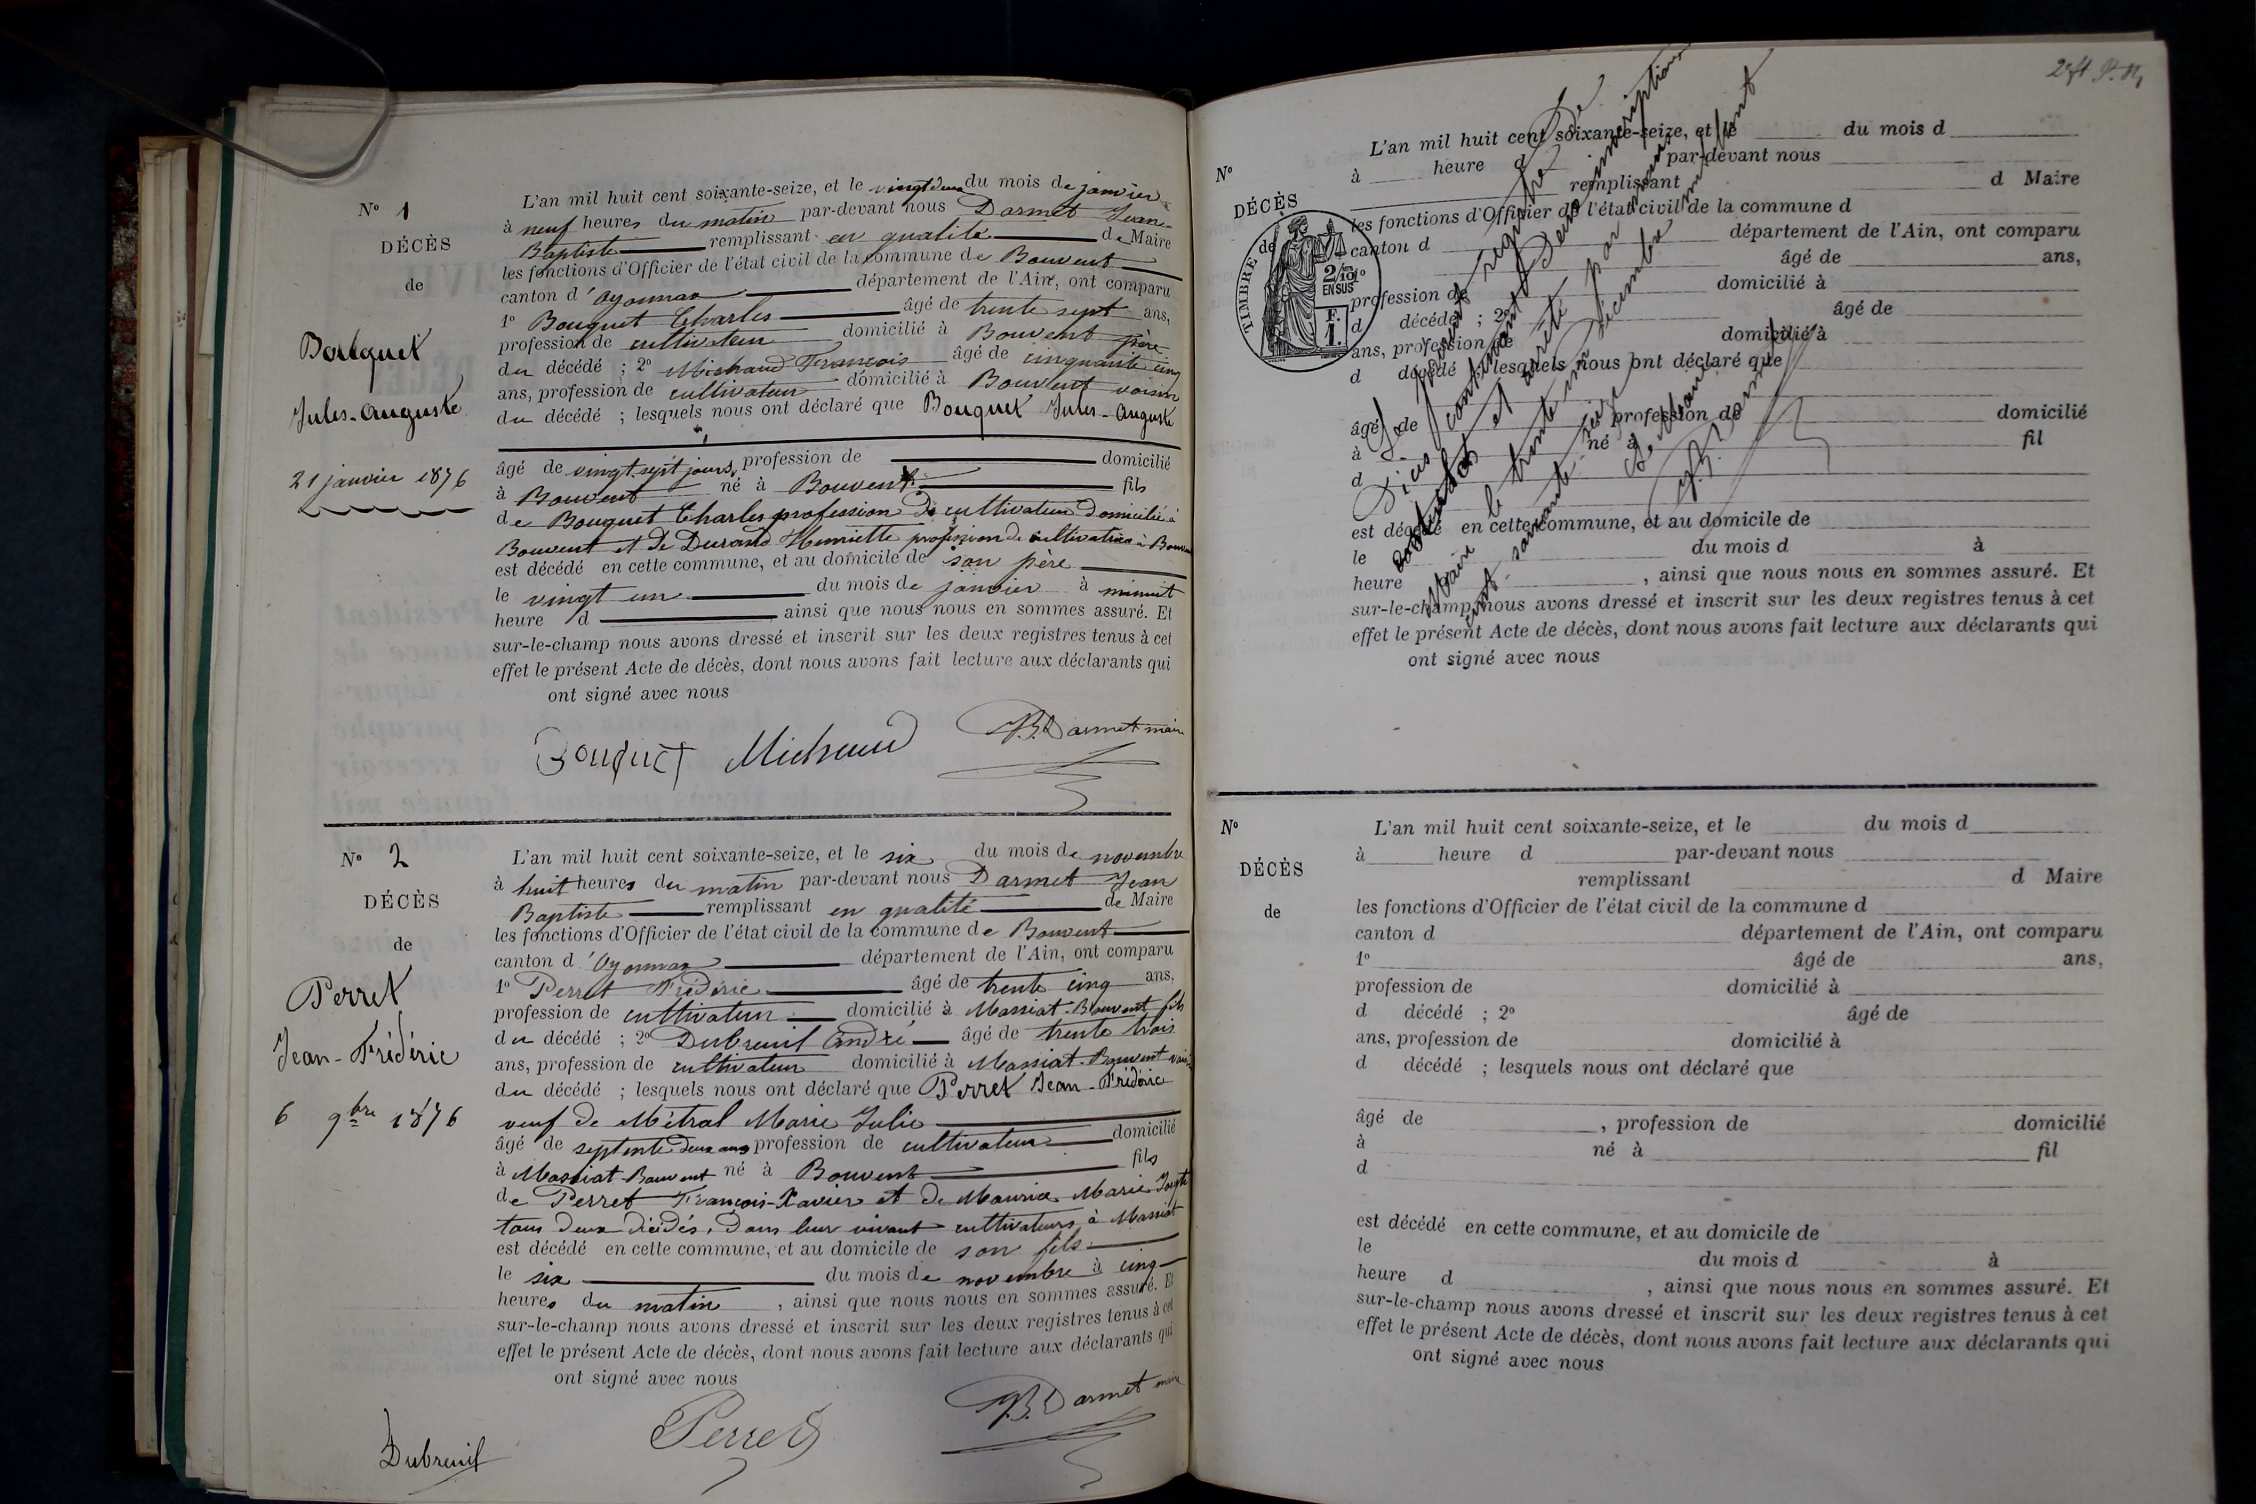 N° 1
DÉCÈS
de
Bouquet
Jules-Auguste
21 janvier 1876
L'an mil huit cent soixante-seize, et le vingt deux du mois de janvier
à neuf heures du matin par-devant nous Darmet Jean-
Baptiste remplissant en qualité de Maire
les fonctions d'Officier de l'état civil de la commune de Bouvent
canton d'Oyonnax département de l'Ain, ont comparu
1° Bouquet Charles âgé de trente sept ans,
profession de cultivateur domicilié à Bouvent père
du décédé ; 2° Michaud François âgé de cinquante cinq
ans, profession de cultivateur domicilié à Bouvent voisin
du décédé ; lesquels nous ont déclaré que Bouquet Jules-Auguste
âgé de vingt sept jours, profession de domicilié
à Bouvent né à Bouvent fils
de Bouquet Charles profession de cultivateur domicilié à
Bouvent et de Durand Henriette profession de cultivatrice à Bouvent
est décédé en cette commune, et au domicile de son père
le vingt un du mois de janvier à minuit
heure d ainsi que nous nous en sommes assuré. Et
sur-le-champ nous avons dressé et inscrit sur les deux registres tenus à cet
effet le présent Acte de décès, dont nous avons fait lecture aux déclarants qui
ont signé avec nous
Bouquet Michaud J.B. Darmet maire
N° 2
DÉCÈS
de
Perret
Jean-Frédéric
6 9bre 1876
L'an mil huit cent soixante-seize, et le six du mois de novembre
à huit heures du matin par-devant nous Darmet Jean
Baptiste remplissant en qualité de Maire
les fonctions d'Officier de l'état civil de la commune de Bouvent
canton d'Oyonnax département de l'Ain, ont comparu
1° Perret Frédéric âgé de trente cinq ans,
profession de cultivateur domicilié à Massiat-Bouvent fils
du décédé ; 2° Dubreuil André âgé de trente trois
ans, profession de cultivateur domicilié à Massiat-Bouvent voisin
du décédé ; lesquels nous ont déclaré que Perret Jean-Frédéric
veuf de Métral Marie Julie
âgé de septente deux ans profession de cultivateur domicilié
à Massiat-Bouvent né à Bouvent fils
de Perret François-Xavier et de Maurice Marie Josepte
tous deux décédés, dans leur vivant cultivateurs à Massiat
est décédé en cette commune, et au domicile de son fils
le six du mois de novembre à cinq
heures du matin , ainsi que nous nous en sommes assuré. Et
sur-le-champ nous avons dressé et inscrit sur les deux registres tenus à cet
effet le présent Acte de décès, dont nous avons fait lecture aux déclarants qui
ont signé avec nous
Dubreuil Perret J.B. Darmet maire
N°
DÉCÈS
de
TIMBRE
2/10 EN SUS
F. 1.
L'an mil huit cent soixante-seize, et le du mois d
à heure d par-devant nous
remplissant d Maire
les fonctions d'Officier de l'état civil de la commune d
canton d département de l'Ain, ont comparu
âgé de ans,
profession de domicilié à
d décédé ; 2° âgé de
ans, profession de domicilié à
d décédé ; lesquels nous ont déclaré que
âgé de profession de domicilié
à né à fil
d
est décédé en cette commune, et au domicile de
le du mois d à
heure , ainsi que nous nous en sommes assuré. Et
sur-le-champ nous avons dressé et inscrit sur les deux registres tenus à cet
effet le présent Acte de décès, dont nous avons fait lecture aux déclarants qui
ont signé avec nous
Le présent registre de
Décès contenant deux inscriptions
a été clos et arrêté par nous soussigné
Maire le trente un décembre mil huit
cent soixante seize
Le Maire
J.B. Darmet
N°
DÉCÈS
de
L'an mil huit cent soixante-seize, et le du mois d
à heure d par-devant nous
remplissant d Maire
les fonctions d'Officier de l'état civil de la commune d
canton d département de l'Ain, ont comparu
1° âgé de ans,
profession de domicilié à
d décédé ; 2° âgé de
ans, profession de domicilié à
d décédé ; lesquels nous ont déclaré que
âgé de , profession de domicilié
à né à fil
d
est décédé en cette commune, et au domicile de
le du mois d à
heure d , ainsi que nous nous en sommes assuré. Et
sur-le-champ nous avons dressé et inscrit sur les deux registres tenus à cet
effet le présent Acte de décès, dont nous avons fait lecture aux déclarants qui
ont signé avec nous